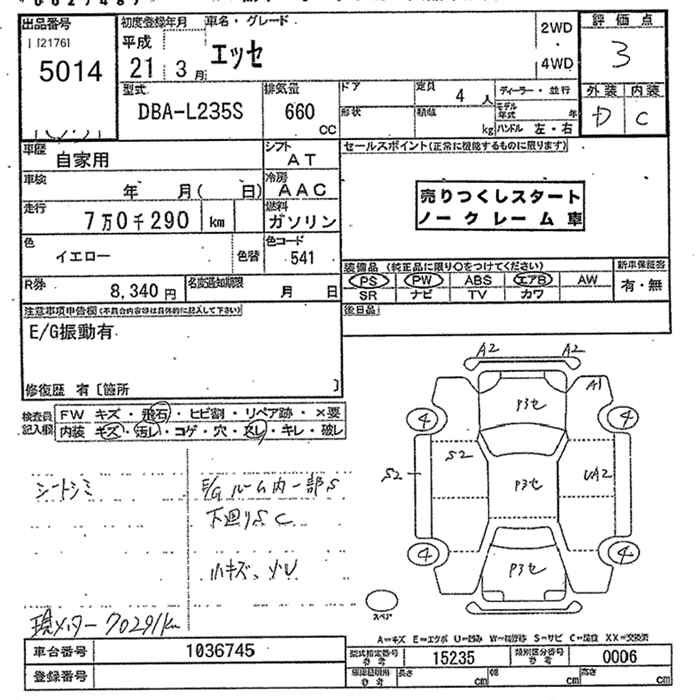 出品番号 初度登録年月 車名・グレード 2WD 評価点
[12176] 平成 エッセ 3
5014 21 3月 4WD
型式 排気量 ドア 定員 ディーラー・並行 外装 内装
DBA-L235S 660 CC 4人 モデル年式 年 D C
形状 積載 kg ハンドル 左・右
車歴 自家用 シフト AT セールスポイント(正常に機能するものに限ります)
車検 年 月( 日) 冷房 AAC
売りつくしスタート
ノークレーム車
走行 7万0千290 km 燃料 ガソリン
色 イエロー 色替 色コード 541
装備品 (純正品に限り○をつけてください) 新車保証書
PS PW ABS エアB AW 有・無
SR ナビ TV カワ
R券 8,340円 名変通知期限 月 日
後日品
注意事項申告欄(不具合内容等は具体的に記入して下さい)
E/G振動有
修復歴 有[箇所 ]
検査員記入欄 FW キズ・飛石・ヒビ割・リペア跡・×要
内装 キズ・汚レ・コゲ・穴・スレ・キレ・破レ
A2 A2
A1
P3セ
4 4
S2 S2 P3セ UA2
4 4
P3セ
スペア
シートシミ E/Gルーム内一部S
下廻りS C
小キズ、小U
現メーター 70291km
A=キズ E=エクボ U=凹み W=補修跡 S=サビ C=腐蝕 XX=交換済
車台番号 1036745 型式指定番号 参考 15235 類別区分番号 参考 0006
登録番号 車庫証明用 参考 長さ cm 幅 cm 高さ cm